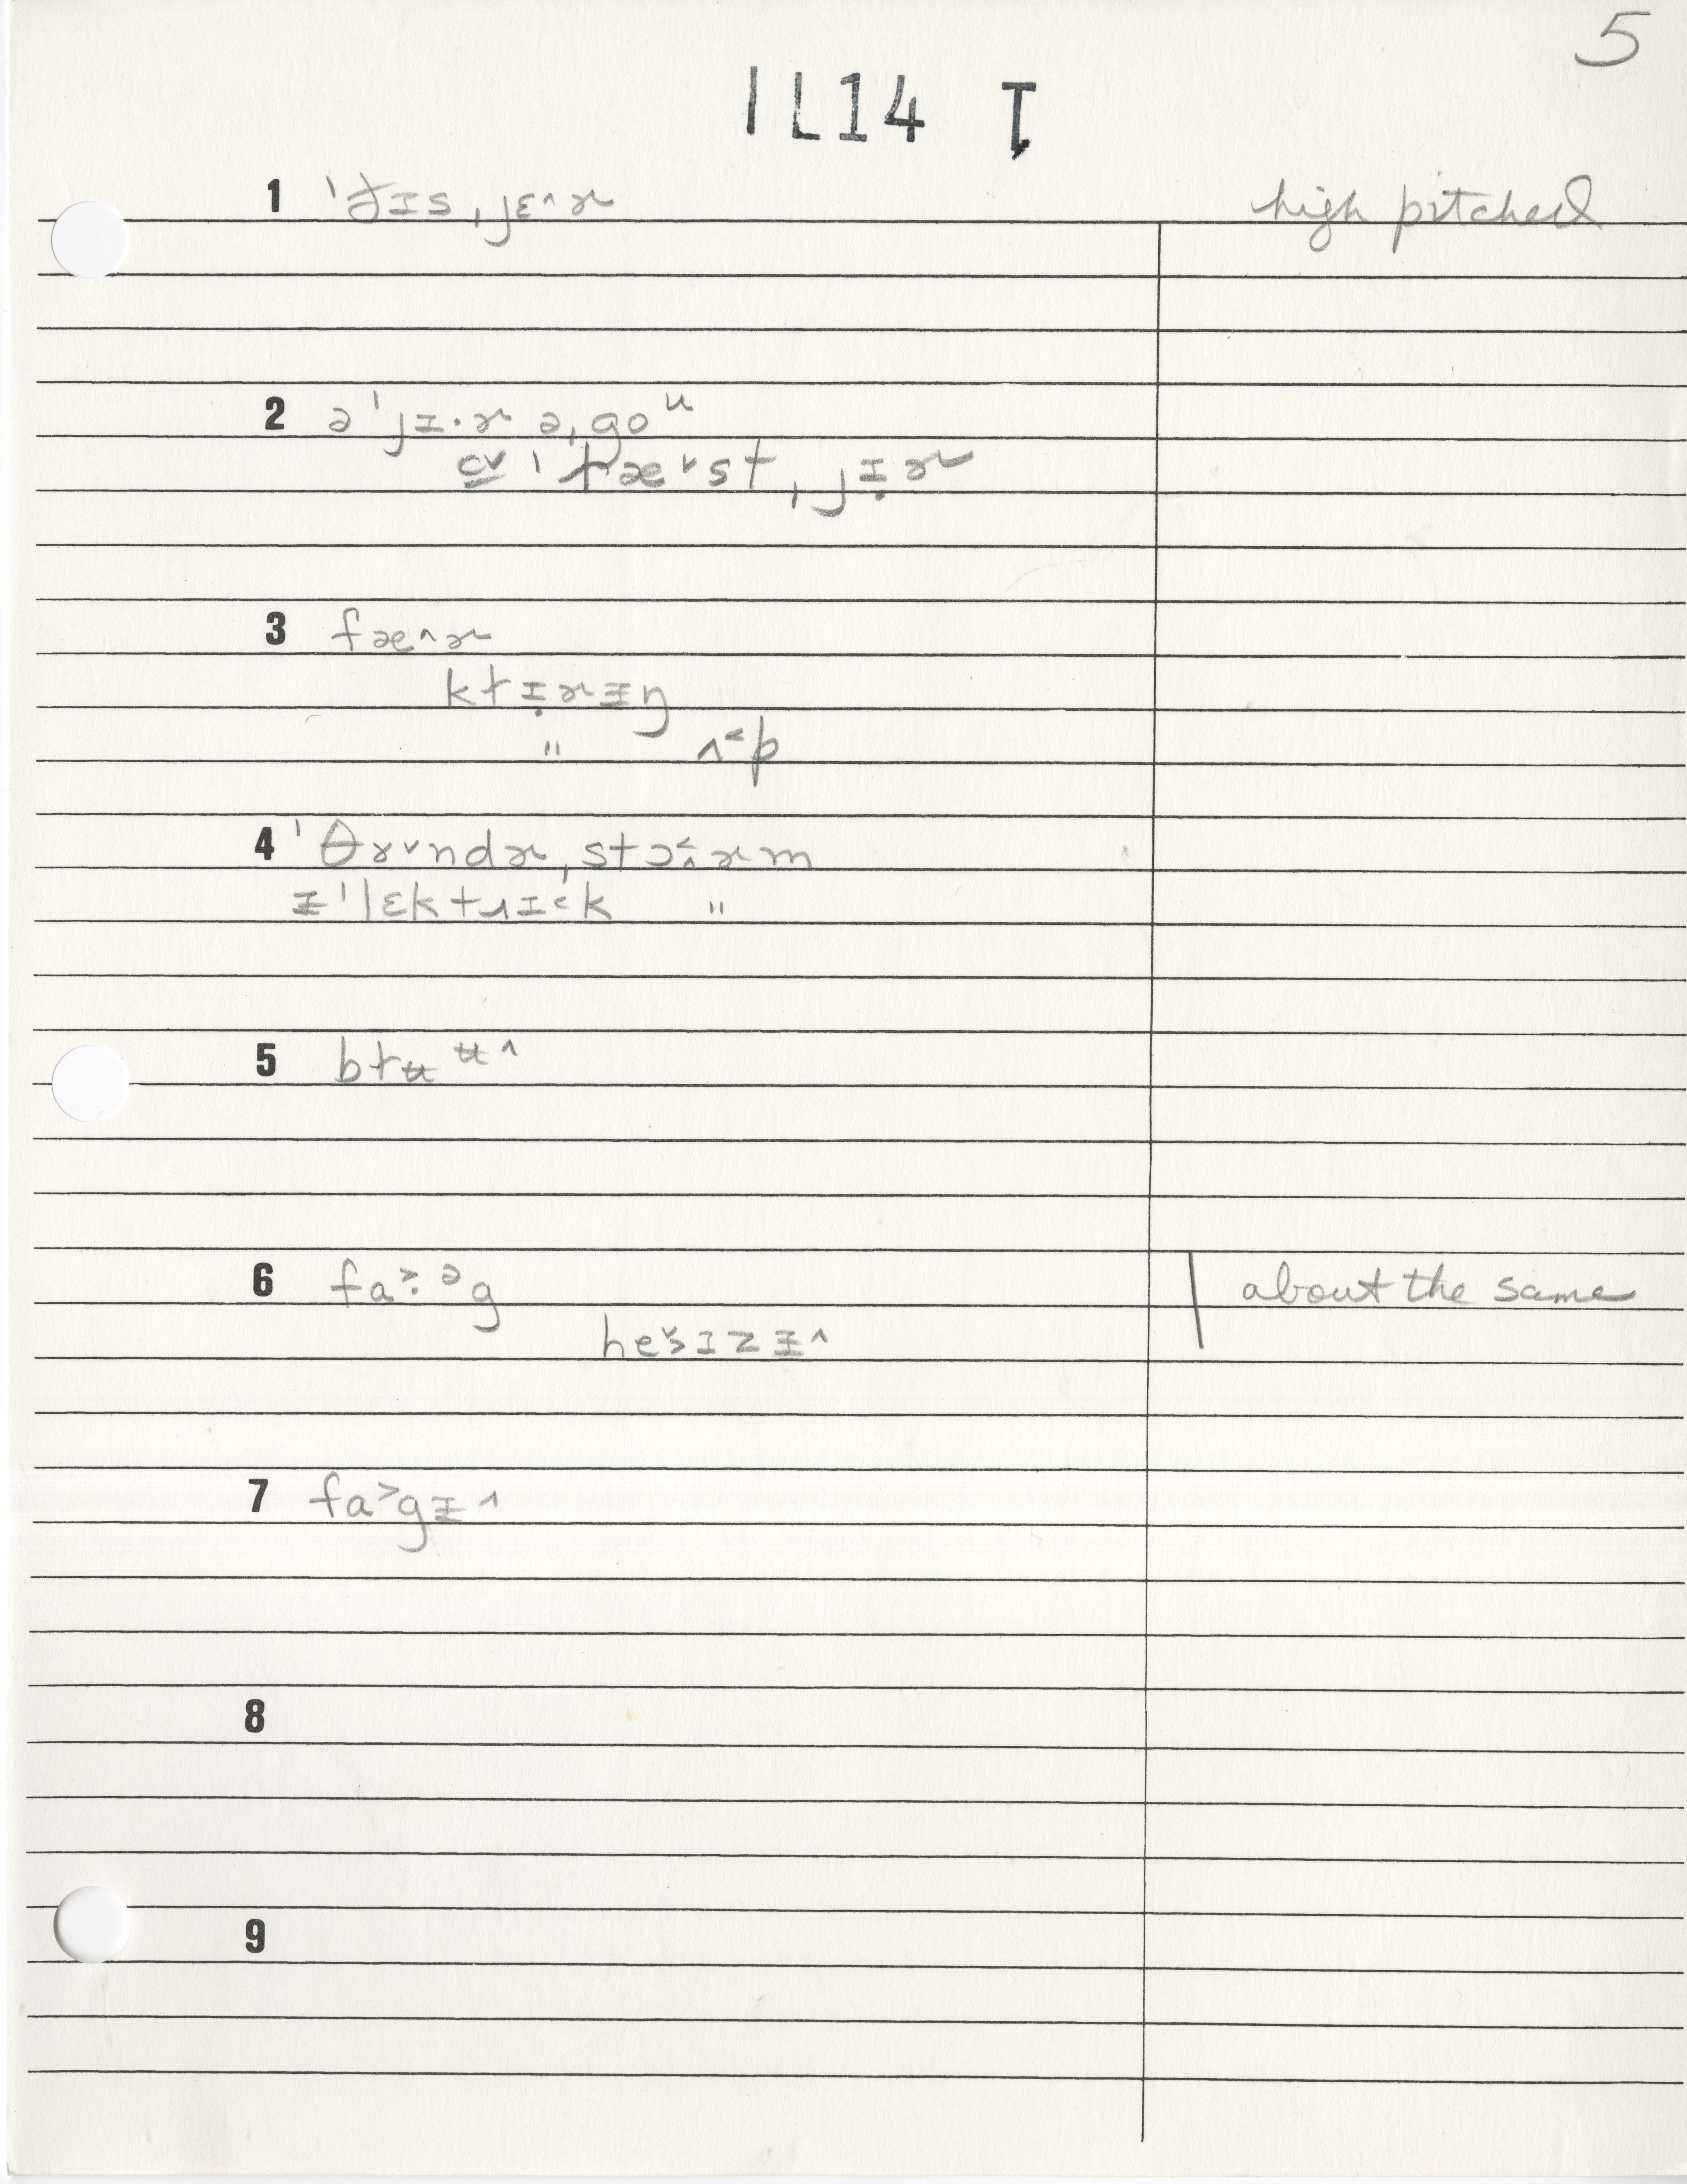 5
IL14 T
1 ˈðɪs ˌjɛ˄ɚ high pitched
2 əˈjɪ·ɚ əˌgoᵘ
ˈɫæ˅st ˌjɪ̣ɚ
3 fæ˄ɚ
kɫɪ̣ɚɪ̵ŋ
" ʌ˂p
4 ˈθɤ˅ndɚ ˌstɔ˂˄ɚm
ɪ̵ˈlɛktɹɪ˂k "
5 bɫʉ ᵾ˄
6 fa˃·ᵊg about the same
he˅ɪzɪ̵˄
7 fa˃gɪ̵˄
8
9